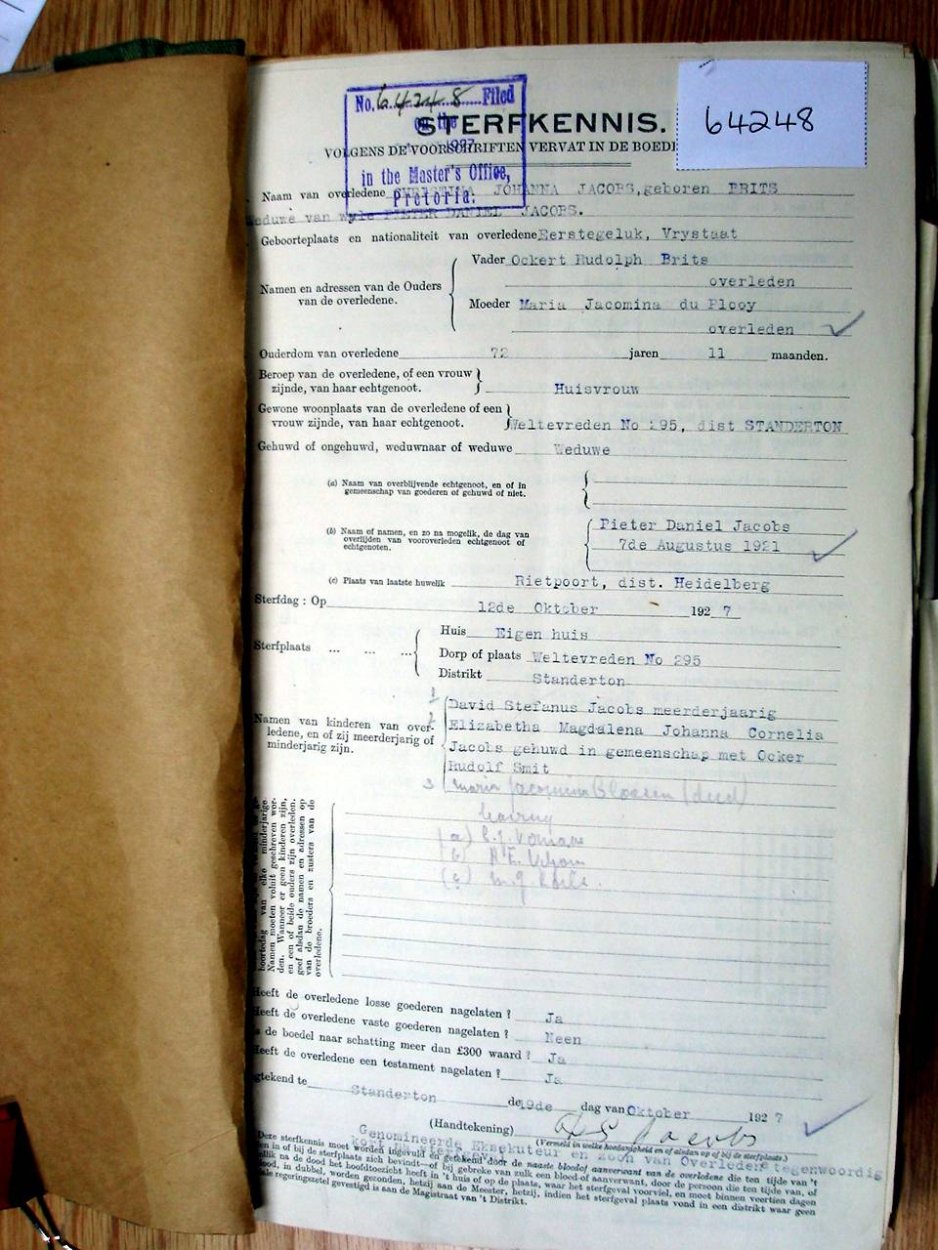 No. 64248 Filed
on the
1927
in the Master's Office,
Pretoria.
64248
STERFKENNIS.
VOLGENS DE VOORSCHRIFTEN VERVAT IN DE BOEDE
Naam van overledene JOHANNA JACOBS, geboren BRITS
Weduwe van wyle PIETER DANIEL JACOBS.
Geboorteplaats en nationaliteit van overledene Eerstegeluk, Vrystaat
Namen en adressen van de Ouders van de overledene.
Vader Ockert Rudolph Brits
overleden
Moeder Maria Jacomina du Plooy
overleden
Ouderdom van overledene 72 jaren 11 maanden.
Beroep van de overledene, of een vrouw
zijnde, van haar echtgenoot. Huisvrouw
Gewone woonplaats van de overledene of een
vrouw zijnde, van haar echtgenoot. Weltevreden No 295, dist STANDERTON
Gehuwd of ongehuwd, weduwnaar of weduwe Weduwe
(a) Naam van overblijvende echtgenoot, en of in
gemeenschap van goederen of gehuwd of niet.
(b) Naam of namen, en zo na mogelik, de dag van
overlijden van vooroverleden echtgenoot of
echtgenoten.
Pieter Daniel Jacobs
7de Augustus 1921
(c) Plaats van laatste huwelik Rietpoort, dist. Heidelberg
Sterfdag : Op 12de Oktober 1927
Sterfplaats ... ... ...
Huis Eigen huis
Dorp of plaats Weltevreden No 295
Distrikt Standerton
Namen van kinderen van over-
ledene, en of zij meerderjarig of
minderjarig zijn.
1 David Stefanus Jacobs meerderjaarig
2 Elizabetha Magdalena Johanna Cornelia
Jacobs gehuwd in gemeenschap met Ocker
Rudolf Smit
3 Maria Jacomina (died)
leaving
(a)
(b)
(c)
boortedag van elke minderjarige
Namen moeten voluit geschreven wor-
den. Wanneer er geen kinderen zijn,
en een of beide ouders zijn overleden.
geef alsdan de namen en adressen op
van de broeders en zusters van de
overledene.
Heeft de overledene losse goederen nagelaten ? Ja
Heeft de overledene vaste goederen nagelaten ? Neen
Is de boedel naar schatting meer dan £300 waard ? Ja
Heeft de overledene een testament nagelaten ? Ja
getekend te Standerton de 19de dag van Oktober 1927
(Handtekening) Jacobs
(Vermeld in welke hoedanigheid en of alsdan op of bij de sterfplaats.)
Genomineerde Eksekuteur en Zoon van Overledene tegenwoordig
Deze sterfkennis moet worden ingevuld en getekend door de naaste bloed of aanverwant van de overledene die ten tijde van 't
en in of bij de sterfplaats zich bevindt—of bij gebreke van zulk een bloed of aanverwant, door de persoon die ten tijde van, of
lik na de dood het hoofdtoezicht heeft in 't huis of op de plaats, waar het sterfgeval voorviel, en moet binnen veertien dagen
dood, in dubbel, worden gezonden, hetzij aan de Meester, hetzij, indien het sterfgeval plaats vond in een distrikt waar geen
ale regeringszetel gevestigd is aan de Magistraat van 't Distrikt.